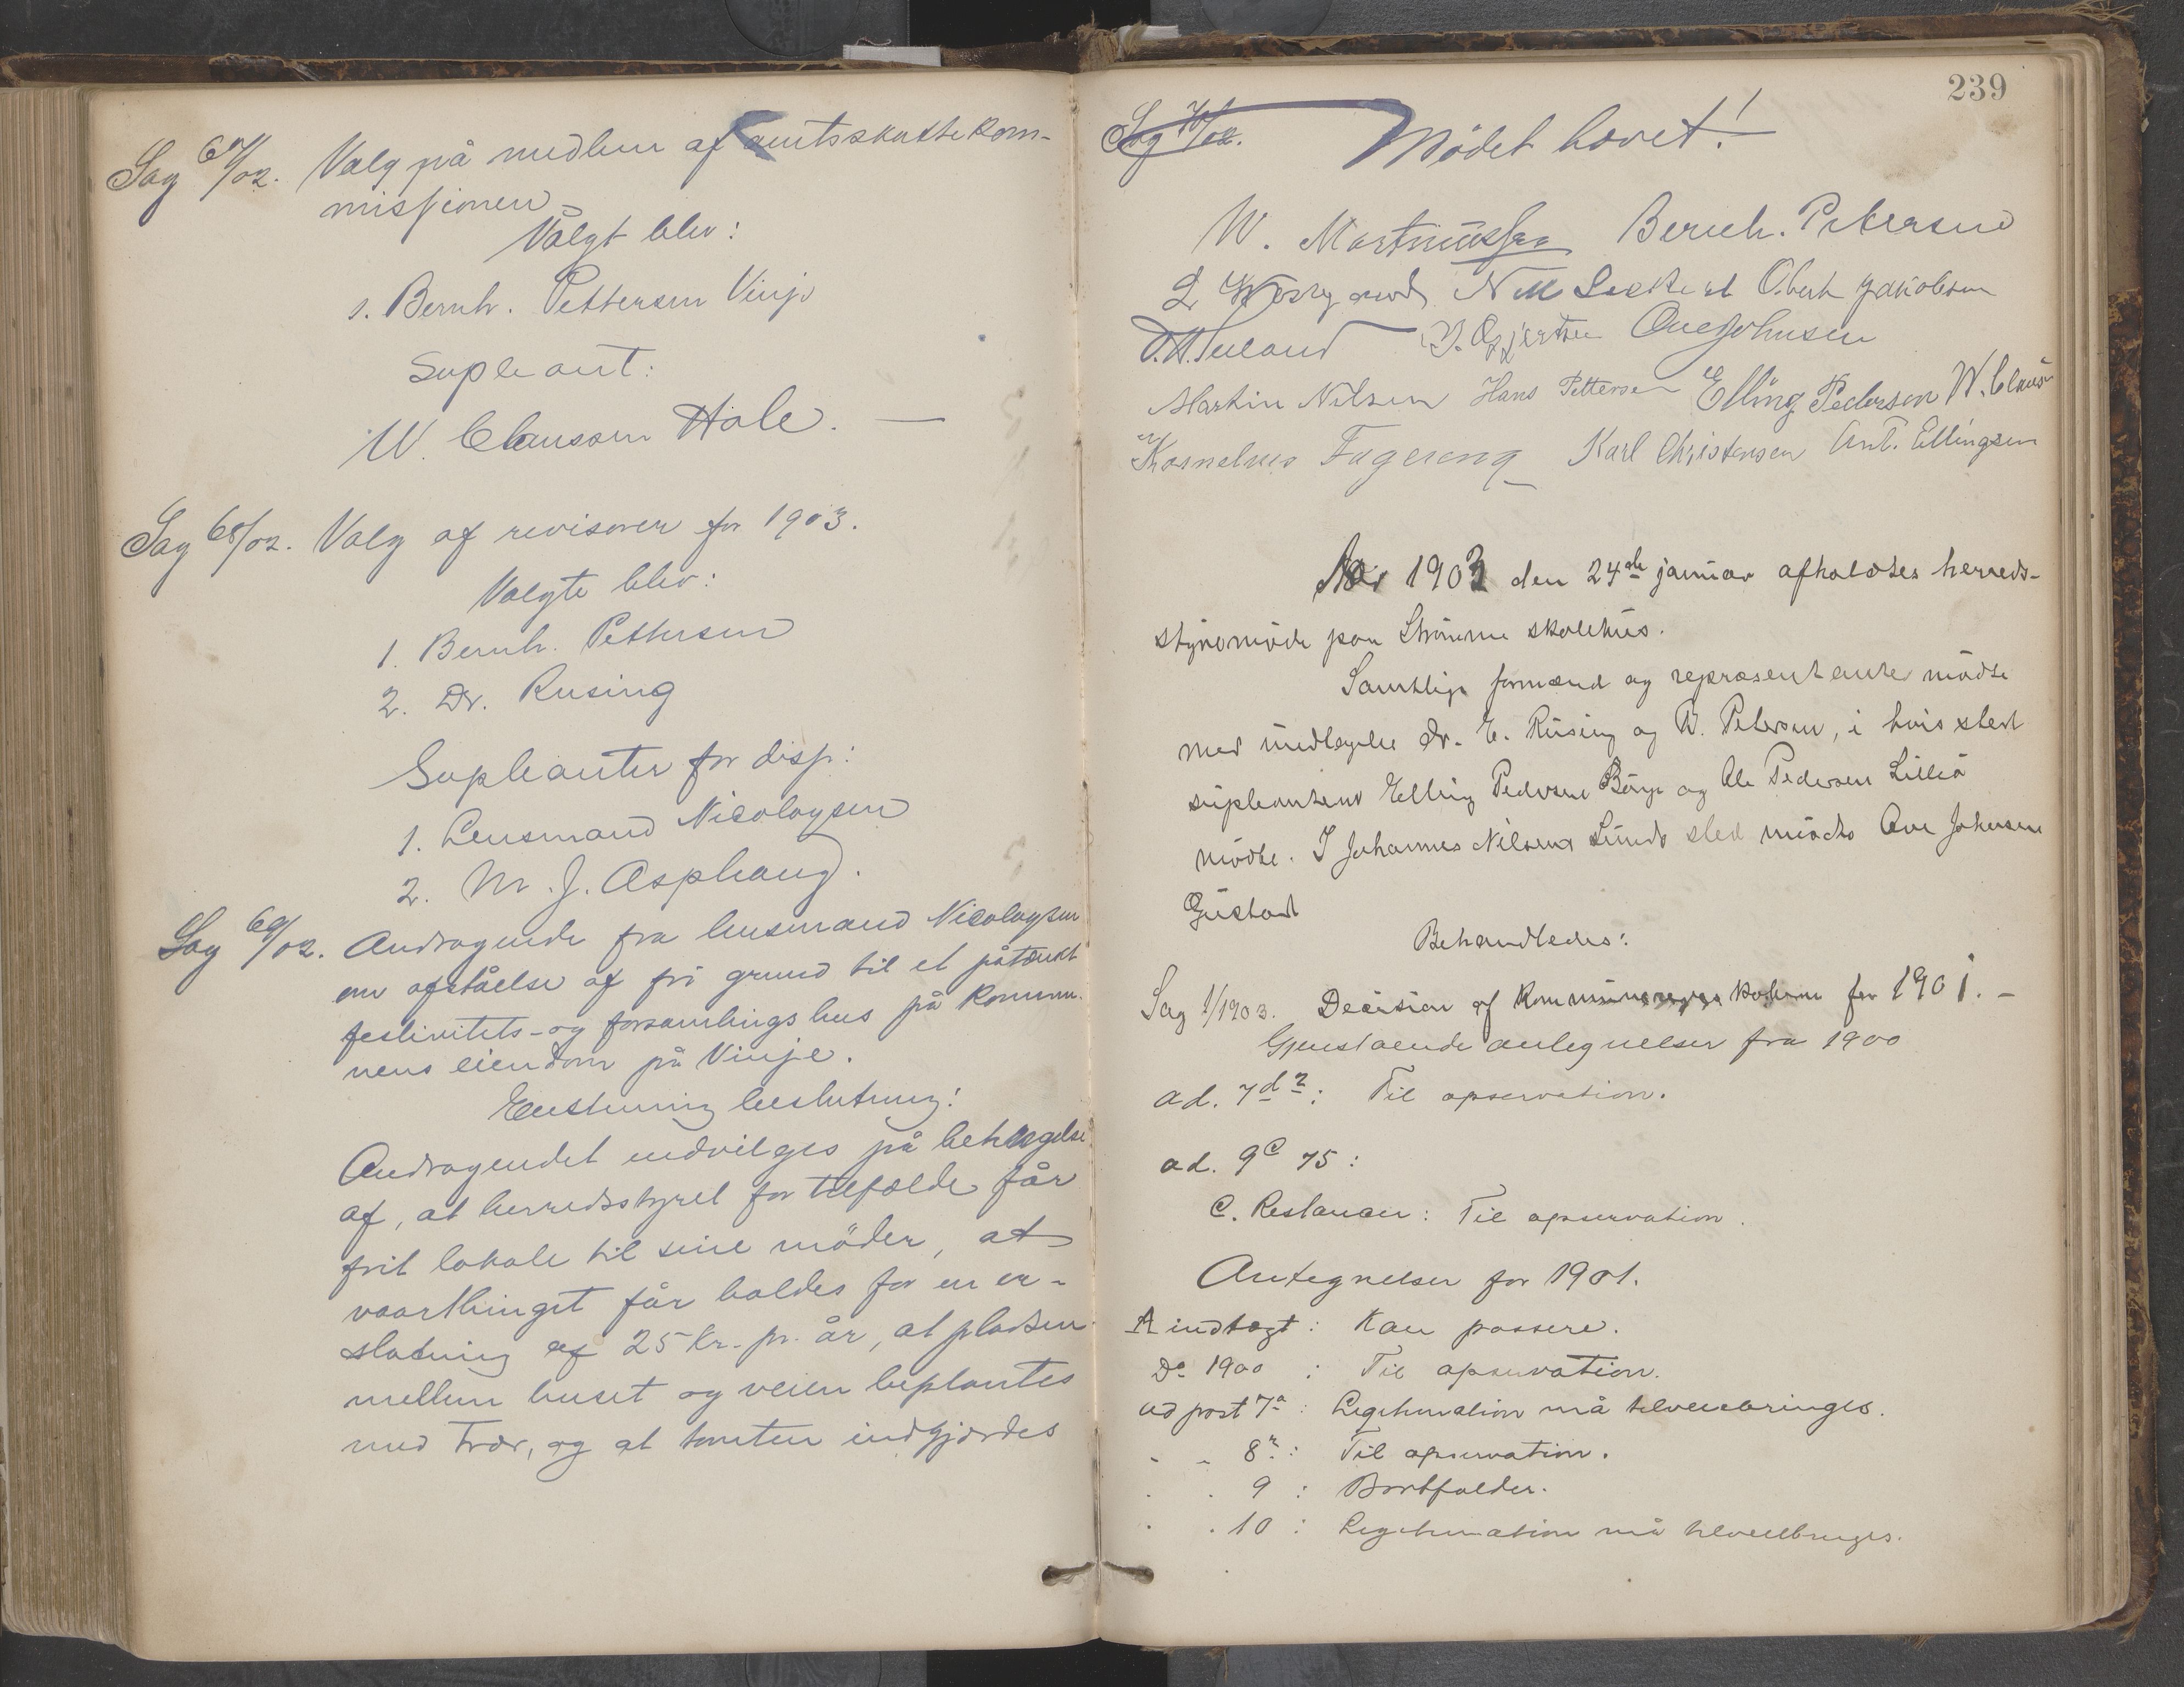 Sag 67/02. Valg på medlem af amtsskattekom-
missionen
Valgt blev:
1. Bernh. Pettersen Vinje
Supleant:
W. Claussen Hole. —
Sag 68/02. Valg af revisorer for 1903.
Valgte blev:
1. Bernh. Pettersen
2. Dr. Rusing
Supleanter for disp:
1. Lensmand Nicolaysen
2. M. J. Asphaug.
Sag 69/02. Andragende fra lensmand Nicolaysen
om afståelse af fri grund til et påtænkt
festivitets- og forsamlingshus på kommu-
nens eiendom på Vinje.
Enstemmig beslutning:
Andragendet indvilges på betingelse
af, at herredsstyret for tilfælde får
frit lokale til sine møder, at
vaarthinget får holdes for en er-
statning af 25 kr. pr. år, at pladsen
mellem huset og veien beplantes
med trær, og at tomten indgjærdes
239
Sag 70/02.
Mödet hævet!
W. Martinussen Bernh. Petersen
Obert Jakobsen
Ove Johnsen
Martin Nilsen Hans Pettersen Elling Pederson W. Claus
Kornelius Fagereng Karl Christensen Ant. Ellingsen
Aar 1903 den 24de januar afholdtes herreds-
styremöde paa Strömme skolehus.
Samtlige formænd og repræsentanter mödte
med undtagelse dr. E. Rüsing og P. Petersen, i hvis sted
supleanterne Elling Pedersen Börge og Ole Pedersen Lilleö
mödte. I Johannes Nilsens Sunds sted mödte Ove Johnsen
Gustad
Behandledes:
Sag 1/1903. Decision af kommuneregnskaberne for 1901. —
Gjenstaaende antegnelser fra 1900
ad. 7d2: Til opservation.
ad. 9c 75:
C. Restancer: Til opservation.
Antegnelser for 1901.
A indtægt: Kan passere.
Do 1900 : Til opservation.
ad post 7a : Legitimation må tilveiebringes.
- - 8 : Til opservation.
. . 9 : Bortfalder.
. . 10 : Legitimation må tilveiebringes.